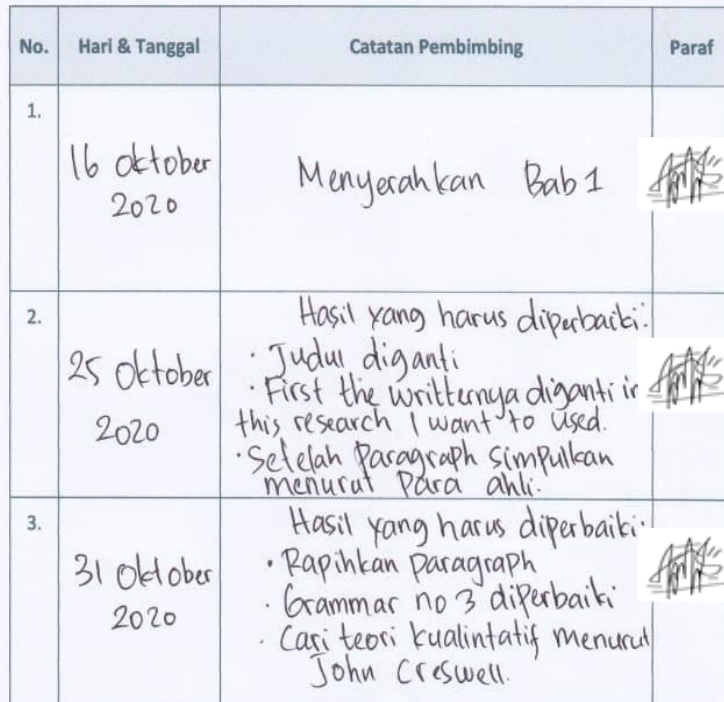 No. Hari & Tanggal Catatan Pembimbing Paraf
1.
16 Oktober
2020
Menyerahkan Bab 1
2.
25 Oktober
2020
Hasil yang harus diperbaiki:
· Judul diganti
· First the writternya diganti in
this research I want to used.
· Setelah Paragraph simpulkan
menurut Para ahli.
3.
31 Oktober
2020
Hasil yang harus diperbaiki:
· Rapihkan paragraph
· Grammar no 3 diperbaiki
· Cari teori kualintatif menurut
John Creswell.